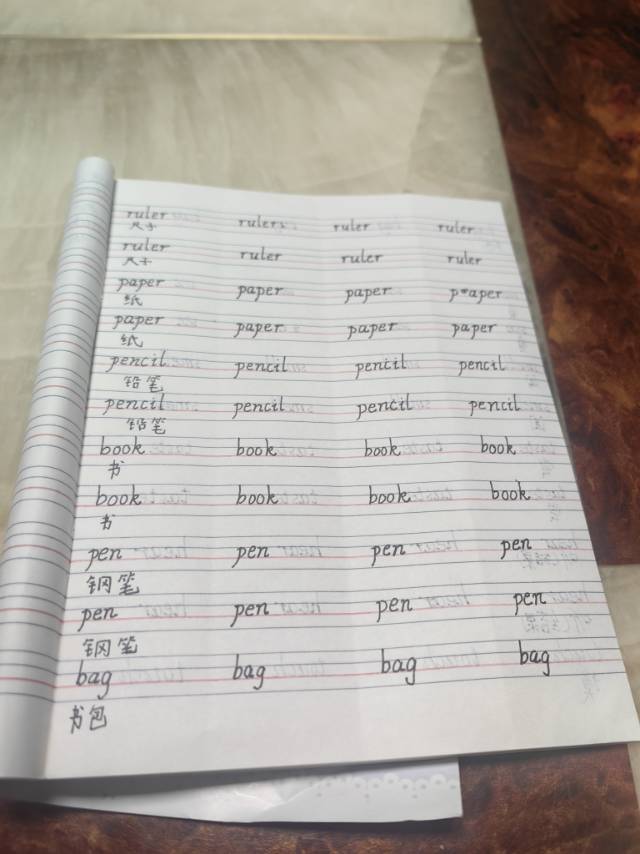 ruler ruler ruler ruler
尺子
ruler ruler ruler ruler
尺子
paper paper paper p*aper
纸
paper paper paper paper
纸
pencil pencil pencil pencil
铅笔
pencil pencil pencil pencil
铅笔
book book book book
书
book book book book
书
pen pen pen pen
钢笔
pen pen pen pen
钢笔
bag bag bag bag
书包